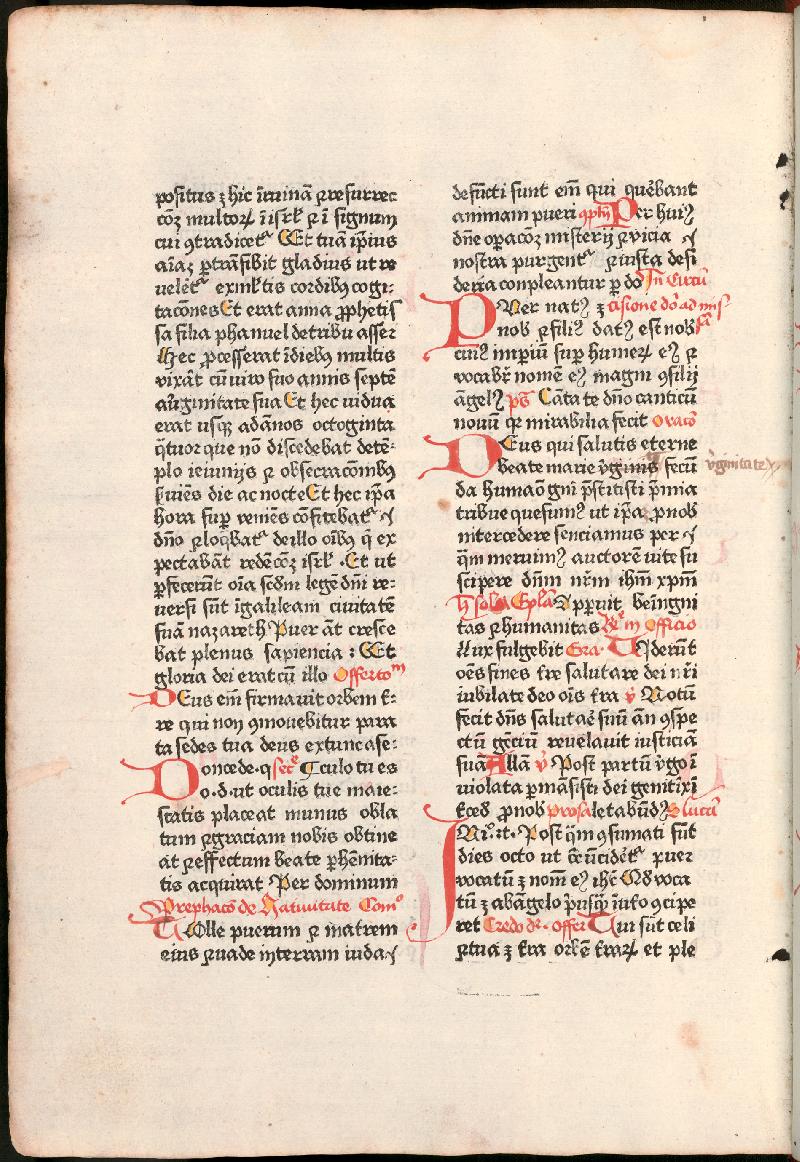 positus ꝫ hic ī ruinā ꝛ resurrec
cōꝫ multoꝝ ī isrł ꝛ ī signum
cui ꝯtradicetᷣ Et tuā ip̄ius
aīaꝫ ꝑtrāsibit gladius ut re
veletᷣ ex mltis cordibꝰ cogi-
tacōnes Et erat anna ꝓphetis
sa filia phanuel de tribu asser
Hec ꝓcesserat ī diebꝰ multis
vixāt cū viro suo annis septē
a v̄ginitate sua Et hec uidua
erat usqꝫ ad ānos octoginta
q̄tuor que nō discedebat de tē-
plo ieiunijs ꝛ obsecracōnibꝰ
suiēs die ac nocte Et hec ip̄a
hora suꝑ veniēs cōfitebatᷣ
dn̄o ꝛ loqbatᷣ de illo oībꝰ q̄ ex
pectabāt redēcōꝫ isrł · Et ut
ꝑfecerūt oīa scd̄m legē dn̄i re-
uersi sūt ī galileam ciuitatē
suā nazareth Puer āt cresce
bat plenus sapiencia : Et
gloria dei erat cū illo Offertoᵐ
DEus em̄ firmauit orbem t̄-
re qui non ꝯmouebitur para
ta sedes tua deus ex tunc a se-
Doncede · q secᵉ culo tu es
o · d · ut oculis tue maie-
statis placeat munus obla
tum ꝛ graciam nobis obtine
at ꝛ effectum beate ꝑhēnita-
tis acquirat Per dominum
Prephacō de Natiuitate Comᵒ
TOlle puerum ꝛ matrem
eius ꝛ uade in terram iuda
defūcti sunt em̄ qui querebant
animam pueri ꝯplīn Per huiꝰ
dn̄e oꝑacōꝫ misterij ꝛ vicia
nostra purgentᷣ ꝛ iusta desi
deria conpleantur ꝑ do In Circū
PVer natꝰ ꝫ cisione dō ad miſ
nob ꝛ filiꝰ datꝰ est nob sā
cuiꝰ imperiū suꝑ humeꝝ eꝰ ꝛ
vocabr̄ nomē eꝰ magni ꝯsilij
āgelꝰ ps̄ Cāta te dn̄o canticū
nouū qꝛ mirabilia fecit Oracō
DEus qui salutis eterne
beate marie v̄ginis fecū v̄ginitate
da humāo gn̄i p̄stitisti p̄mia
tribue quesumꝰ ut ip̄aꝫ ꝓ nob
intercedere senciamus per
q̄m meruimꝰ auctorē uite su
scipere dn̄m nr̄m ih̄m xp̄m
H sola Ep̄la Apꝑuit benigni
tas ꝛ humanitas Rᵉ in officio
Lux fulgebit Gra · Viderūt
oēs fines t̄re salutare dei nr̄i
iubilate deo oīs t̄ra v̄ Notū
fecit dn̄s salutaē suū an̄ ꝯspe
ctū gēciū reuelauit iusticiā
suā Allā v̄ Post partū v̄go ī
violata ꝑmāsisti dei genitixi
t̄ced ꝓ nob prosa letabūdꝰ S lucā
INi°. it · Post q̄m ꝯsumati sūt
dies octo ut c̄rcūcidētᷣ puer
vocatū ꝫ nom̄ eꝰ ih̄c Qd voca
tū ꝫ ab āgelo p̄usqꝫ ī uto ꝯcipe
ret Credo dr̄ · offer Tui sūt celi
ꝛ tua ꝫ t̄ra orbē t̄raꝝ et ple